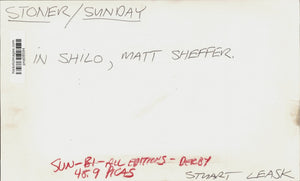 STONER/SUNDAY
IN SHILO, MATT SHEFFER.
SUN-B1-ALL EDITIONS-DERBY
48.9 PICAS
STUART LEASK